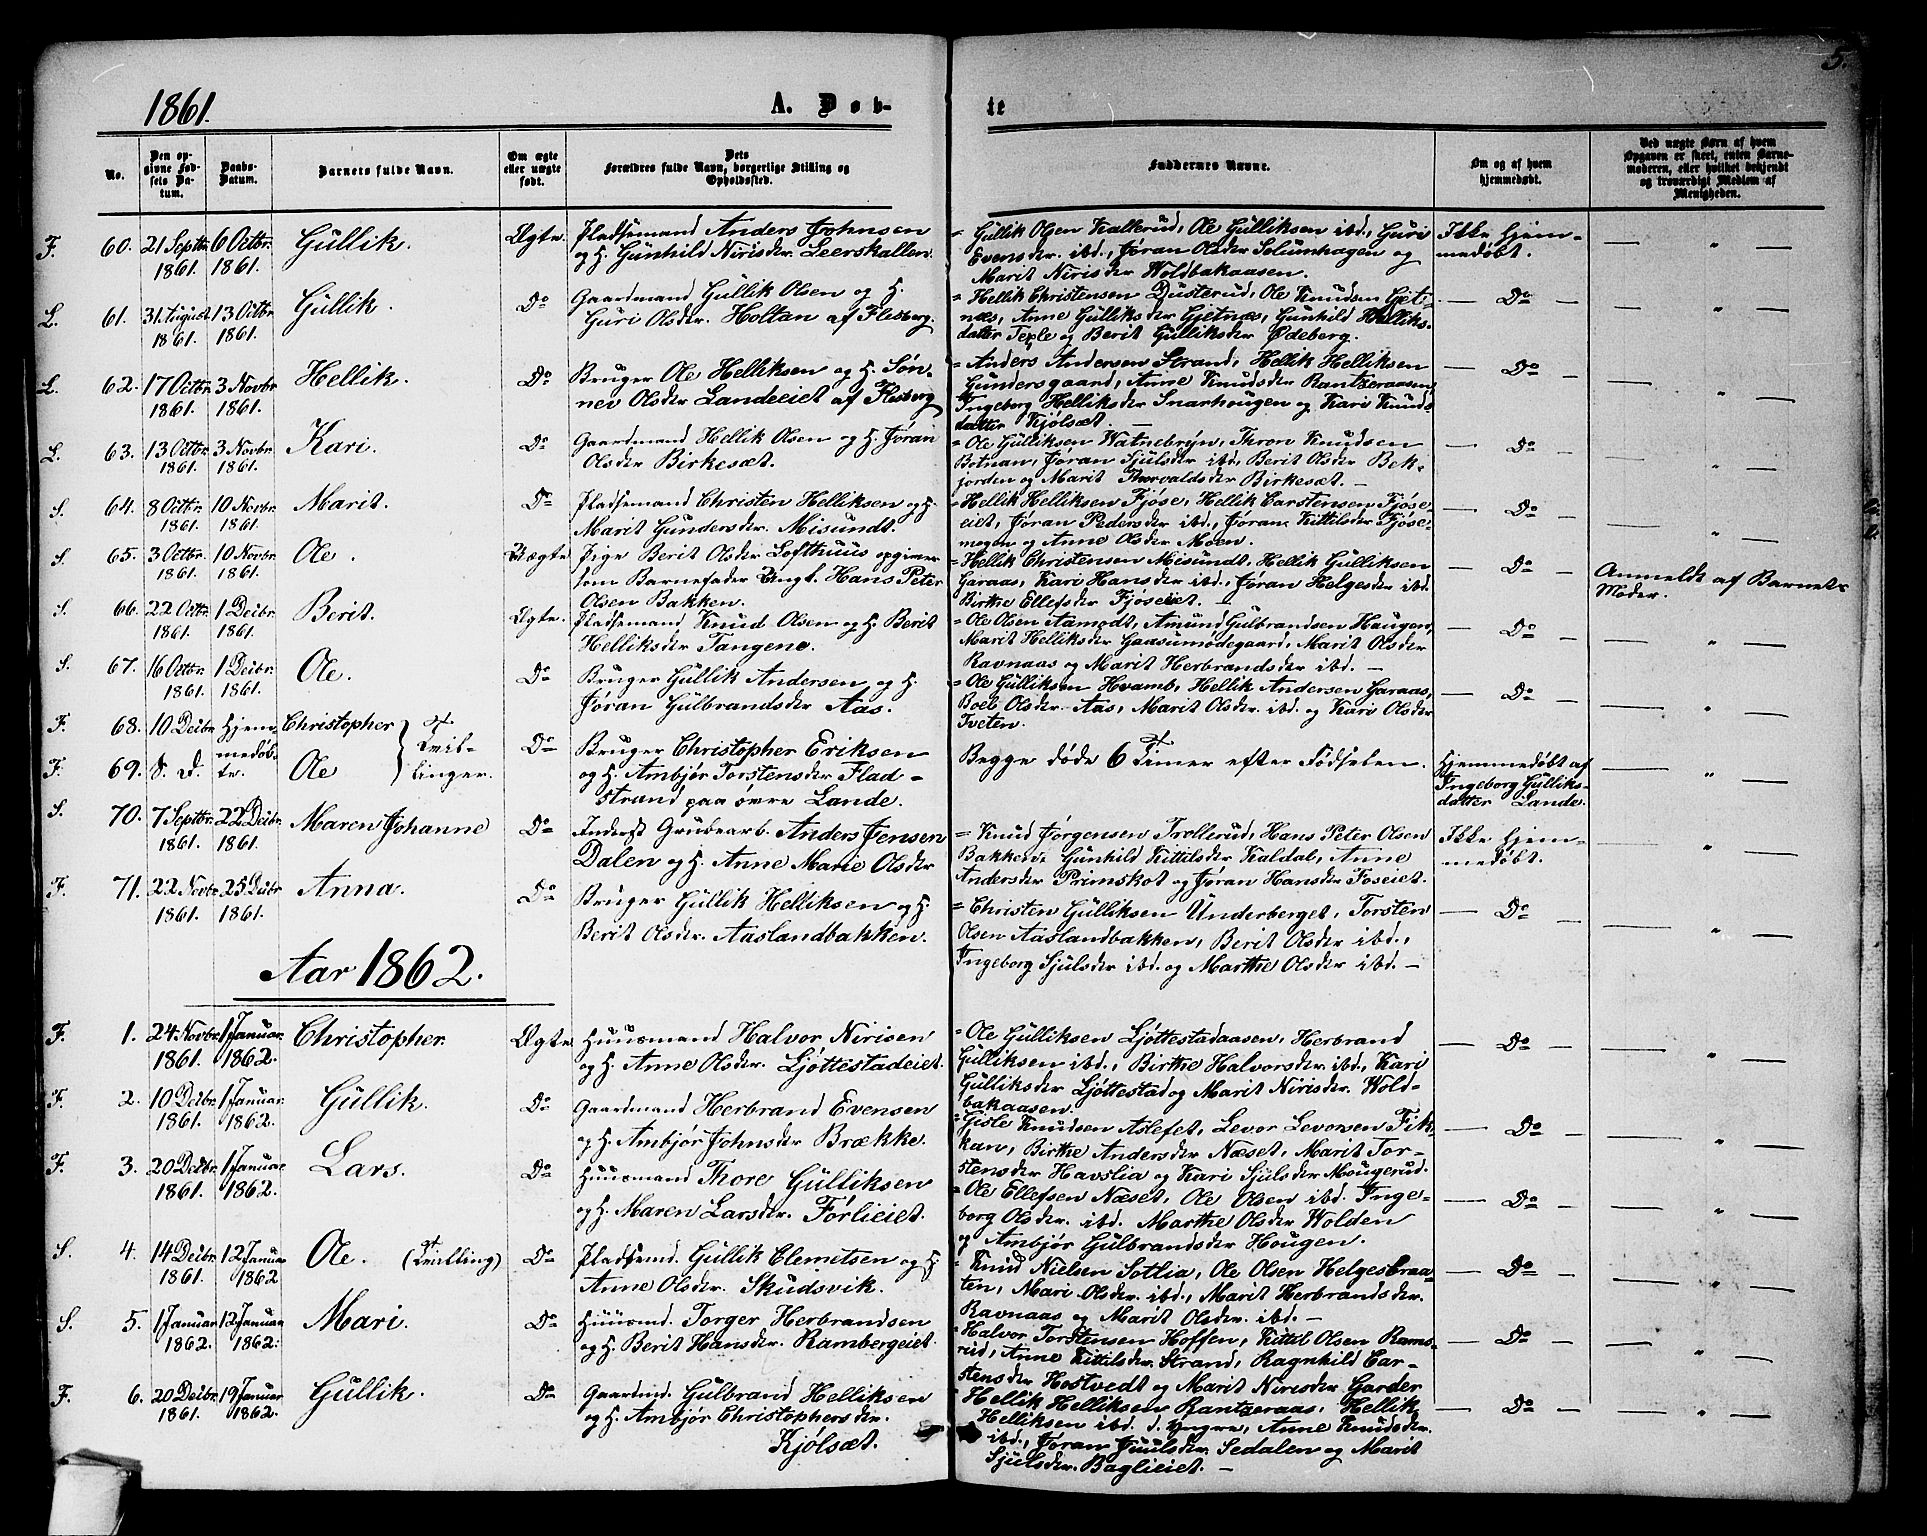 5.
1861. A. Døb- te
No. Den opgivne Fødsels Datum. Daabs-Datum. Barnets fulde Navn. Om ægte eller uægte født. Dets Forældres fulde Navn, borgerlige Stilling og Opholdssted. Faddernes Navne. Om og af hvem hjemmedøbt. Ved uægte Børn af hvem Opgaven er skeet, enten Barnemoderen, eller hvilket bekjendt og troværdigt Medlem af Menigheden.
F. 60. 21 Septbr. 1861. 6 Octbr. 1861. Gullik. Ægte.
Pladsemand Anders Johnsen
og H. Gunhild Nirisder. Leerskallen.
= Gullik Olsen Kallerud, Ole Gulliksen ibd., Guri
Evensder. ibd., Jøran Olsder Solumhagen og
Marit Nirisder Woldbakaasen.
Ikke hjem-
medøbt.
— " —
L. 61. 31 August 1861. 13 Octbr. 1861. Gullik. Do
Gaardmand Gullik Olsen og H.
Guri Olsder. Holtan af Flesberg.
= Hellik Christensen Dusterud, Ole Knudsen Gjet-
næs, Anne Gulliksder Gjetnæs, Gunhild Helliks-
datter Texle og Berit Gulliksder Ødeberg.
— Do —
— " —
L. 62. 17 Octbr. 1861. 3 Novbr. 1861. Hellik. Do
Bruger Ole Helliksen og H. Søn-
nev Olsder Landeeiet af Flesberg
= Anders Andersen Strand, Hellik Helliksen
Gundersgaard, Anne Knudsder Rantzeraasen,
Ingeborg Helliksder Snarhougen og Kari Knuds-
datter Kjølsæt. —
— Do —
— " —
L. 63. 13 Octbr. 1861. 3 Novbr. 1861. Kari. Do
Gaardmand Hellik Olsen og H. Jøran
Olsder Birkesæt.
= Ole Gulliksen Watnebryn, Thron Knudsen
Botnan, Jøran Sjulsder ibd., Berit Olsder Bek-
jorden og Marit Thorvaldsder Birkesæt. —
— Do —
— " —
S. 64. 8 Octbr. 1861. 10 Novbr. 1861. Marit. Do
Pladsemand Christen Helliksen og H.
Marit Gundersder. Misundt.
= Hellik Helliksen Fjøse, Hellik Carstensen Fjøse-
eiet, Jøran Pedersder ibd., Jøran Kittilsder Fjøse-
mogen og Anne Olsder Moen.
— Do —
— " —
S. 65. 3 Octbr. 1861. 10 Novbr. 1861. Ole. Uægte.
Pige Berit Olsder Lofthuus opgiver
som Barnefader Ungk. Hans Peter
Olsen Bakken.
= Hellik Christensen Misundt, Hellik Gulliksen
Garaas, Kari Hansder ibd., Jøran Helgesder ibd.
Birthe Ellefsder Fjøseiet. —
— Do —
Anmeldt af Barnets
Moder.
S. 66. 22 Octbr. 1861. 1 Decbr. 1861. Berit. Ægte.
Pladsemand Knud Olsen og H. Berit
Helliksder Tangene.
= Ole Olsen Aamodt, Amund Gulbrandsen Haugen,
Marit Helliksder Gaasumodegaard, Marit Olsder
Ravnaas og Marit Herbrandsder ibd. —
— Do —
— " —
S. 67. 16 Octbr. 1861. 1 Decbr. 1861. Ole. Do
Bruger Gullik Andersen og H.
Jøran Gulbrandsder Aas.
= Ole Gulliksen Hvamb, Hellik Andersen Garaas,
Boel Olsder. Aas, Marit Olsder ibd. og Kari Olsder
Tveten.
— Do —
— " —
F. 68. 10 Decbr. Hjem- Christopher
F. 69. S. D. medøb-
te. Ole
Tvil-
linger. Do
Bruger Christopher Eriksen
og H. Ambjør Torstensder Flad-
strand paa øvre Lande.
Begge døde 6 Timer efter Fødselen.
Hjemmedøbt af
Ingeborg Gulliks-
datter Lande.
— " —
S. 70. 7 Septbr. 1861. 22 Decbr. 1861. Maren Johanne Do
Inderst Grubearb. Anders Jensen
Dalen og H. Anne Marie Olsder
= Knud Jørgensen Trollerud, Hans Peter Olsen
Bakken, Gunhild Kittilsder Kaldal, Anne
Andersder Primskot og Jøran Hansder Foseiet.
Ikke hjem-
medøbt.
— " —
F. 71. 22 Novbr. 1861. 25 Decbr. 1861. Anna. Do
Bruger Gullik Helliksen og H.
Berit Olsder. Aaslandbakken.
= Christen Gulliksen Underberget, Torsten
Olsen Aaslandbakken, Berit Olsder ibd.,
Ingeborg Sjulsder ibd. og Marthe Olsder ibd. —
— Do —
— " —
Aar 1862.
F. 1. 24 Novbr. 1861. 1 Januar 1862. Christopher. Ægte
Huusmand Halvor Nirisen
og H. Anne Olsder. Ljøttestadeiet.
= Ole Gulliksen Ljøttestadaasen, Herbrand
Gulliksen ibd., Birthe Halvorsder ibd., Kari
Gulliksder Ljøttestad og Marit Nirisder. Wold-
bakaasen.
— Do —
— " —
F. 2. 10 Decbr. 1861. 1 Januar. 1862. Gullik. Do
Gaardmand Herbrand Evensen
og H. Ambjør Johnsder Brække.
= Gisle Knudsen Aslefet, Levor Levorsen Fik-
kan, Birthe Andersder Næset, Marit Tor-
stensder Havslia og Kari Sjulsder Mougerud.
— Do —
— " —
F. 3. 20 Decbr. 1861. 1 Januar 1862. Lars. Do
Huusmand Thore Gulliksen
og H. Maren Larsder. Førlieiet.
= Ole Ellefsen Næset, Ole Olsen ibd. Inge-
borg Olsder. ibd. Marthe Olsder Wolden
og Ambjør Gulbrandsder Hougen.
— Do —
— " —
S. 4. 14 Decbr. 1861. 12 Januar 1862 Ole. (Tvilling) Do
Pladsemd. Gullik Clemetsen og H.
Anne Olsder. Skudsvik.
= Knud Nielsen Sotlia, Ole Olsen Helgesbraa-
ten, Mari Olsder. ibd., Marit Herbrandsder.
Ravnaas og Marit Olsder. ibd. —
— Do —
— " —
S. 5. 1 Januar 1862. 12 Januar 1862. Mari. Do
Huusmd. Torger Herbrandsen
og H. Berit Hansder. Rambergeiet.
= Halvor Torstensen Hoffen, Kittil Olsen Rams-
rud, Anne Kittilsder. Strand, Ragnhild Car-
stensder Hostvedt og Marit Nirisder. Garder
— Do —
— " —
F. 6. 20 Decbr. 1861. 19 Januar 1862. Gullik. Do
Gaardmd. Gulbrand Helliksen
og H. Ambjør Christophersder.
Kjølsæt.
= Hellik Helliksen Rantzeraas, Hellik
Helliksen ibd. d. yngre, Anne Knudsder.
ibd., Jøran Juulsder. Sedalen og Marit
Sjulsder. Baglieiet. —
— Do —
— " —